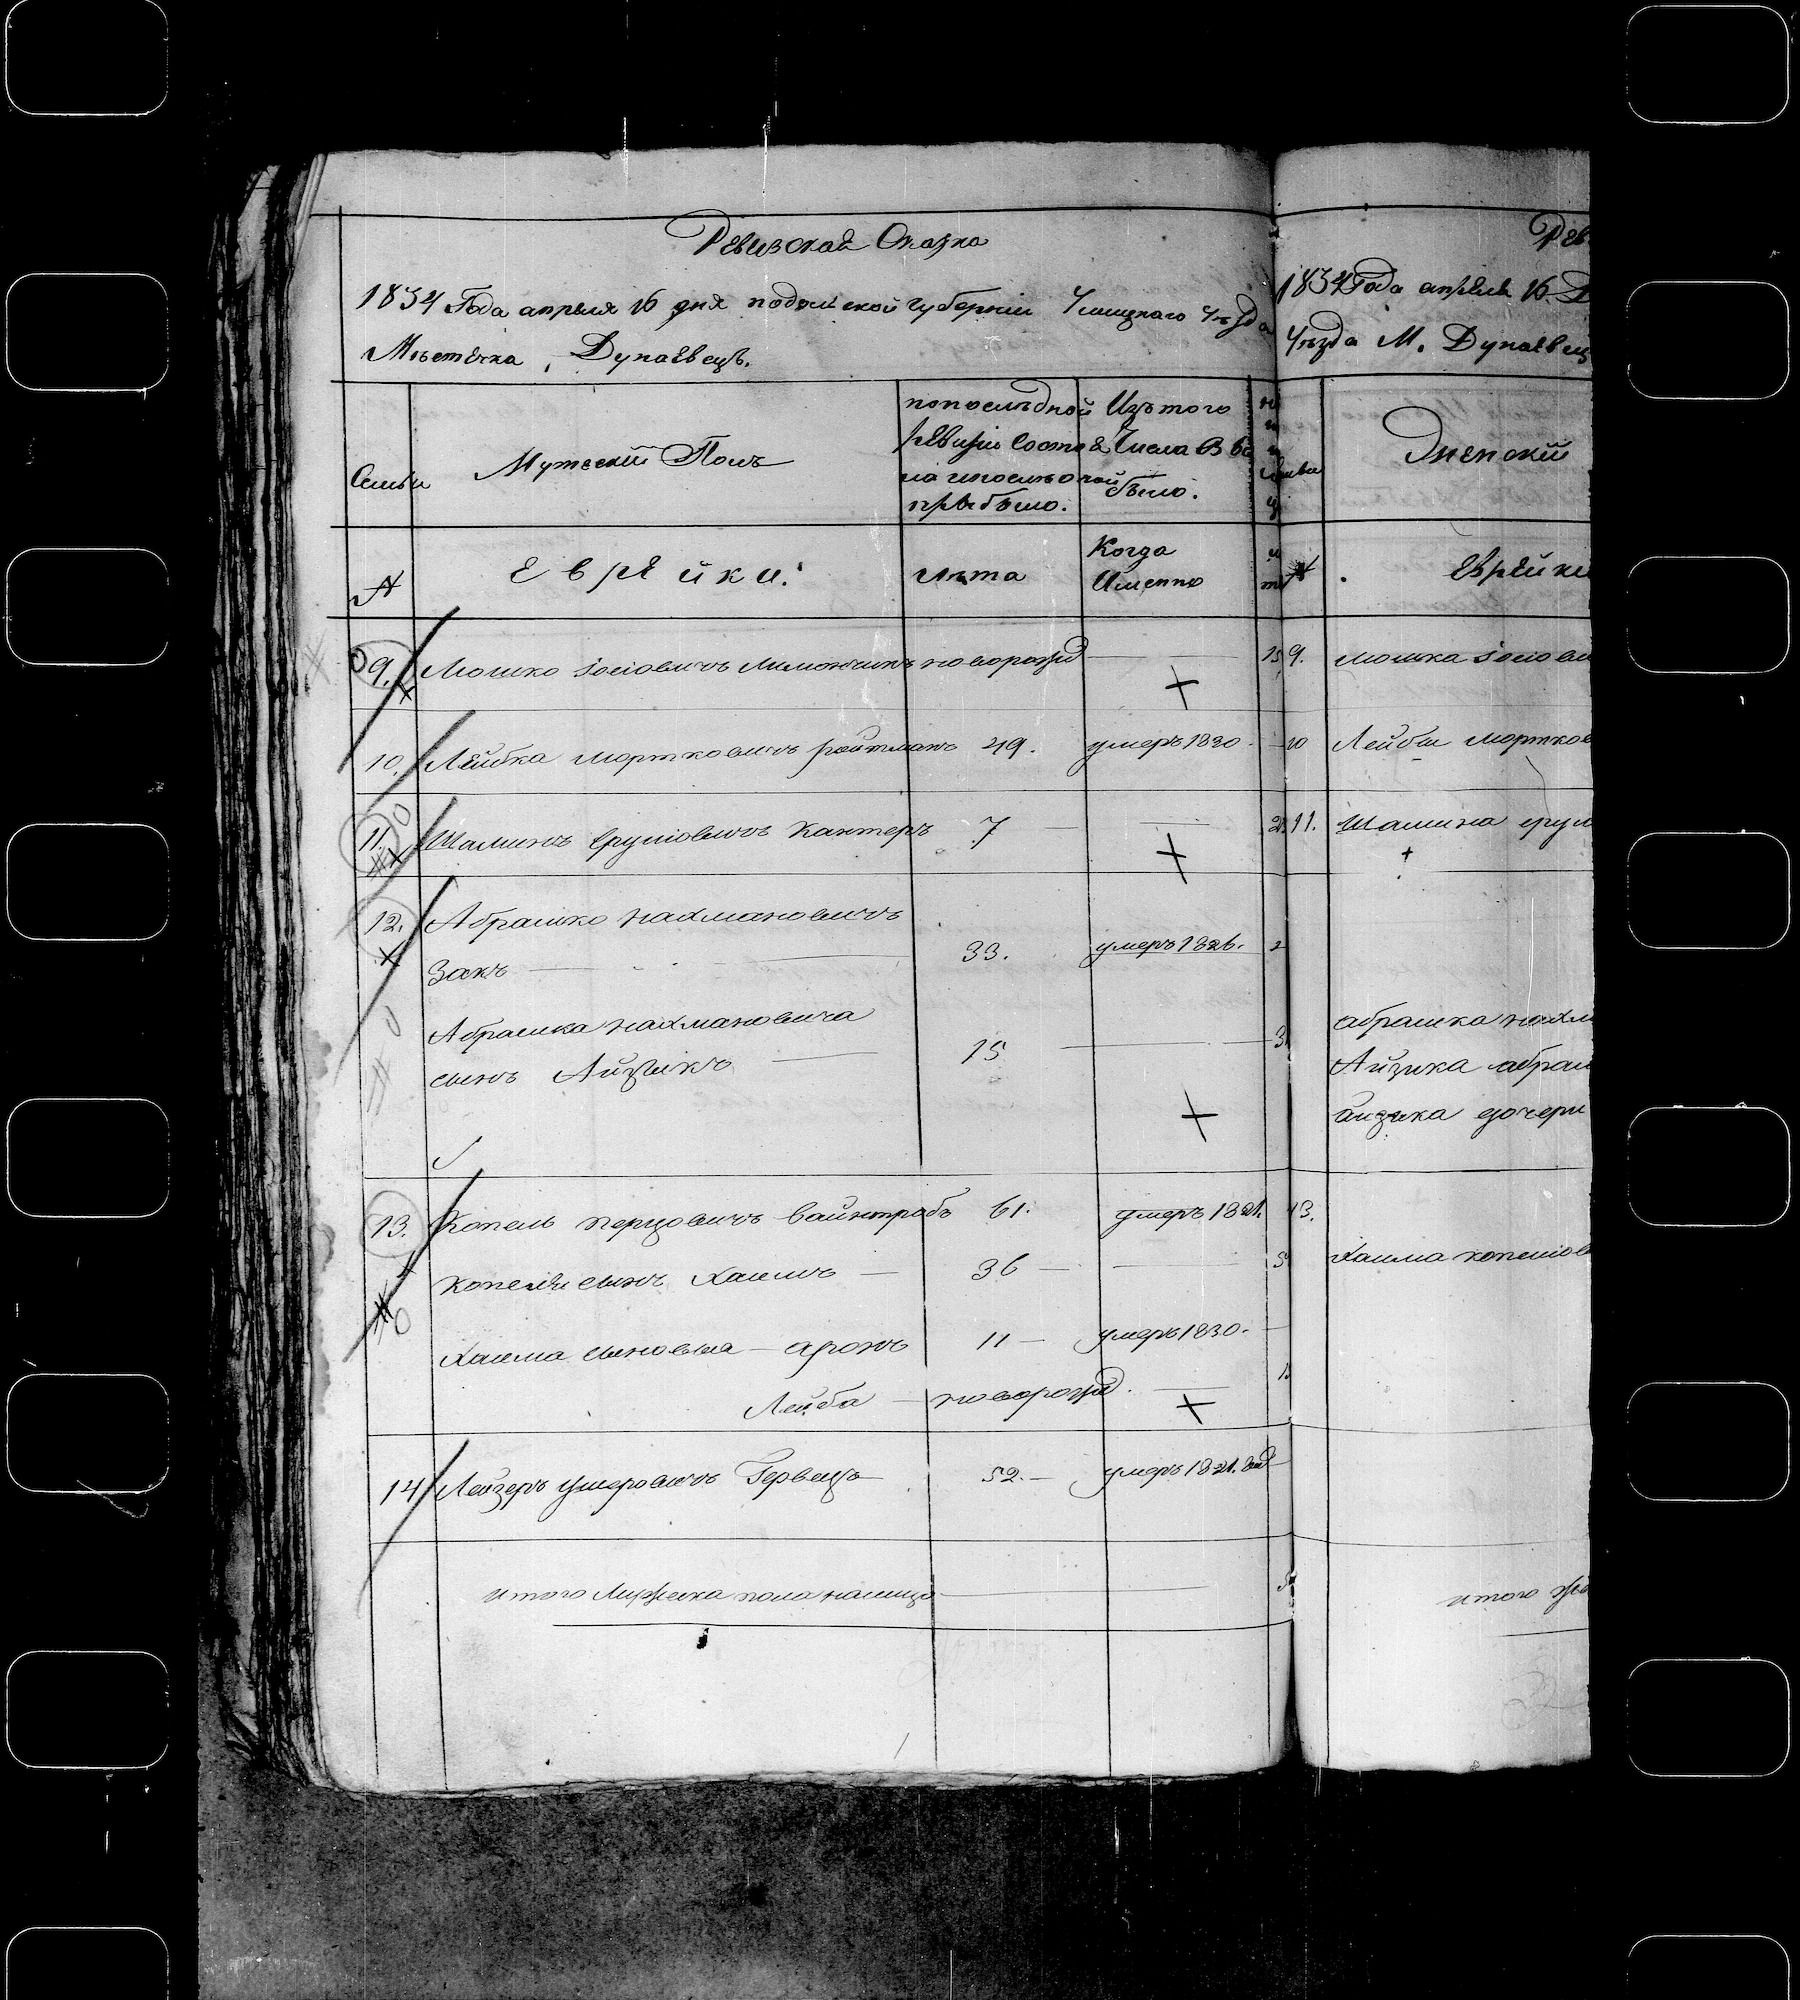 Ревизская Сказка
1834 Года апреля 16 дня подольской губерніи Ушицкаго уѣзда
Мѣстечка Дунаевецъ.
Семьи
Мужескій Полъ
попослѣдной
ревизіи состоя
ло и послѣ оной
прибыло.
Изъ того
Числа выбы
было.
№
Еврейки.
лѣта
Когда
Именно
9. Мошко Iосiовичъ новорожд
10. Лейбка Мортковичъ ройтманъ 49. умеръ 1830.
11. Шаминъ Сруліовичъ Кантеръ 7
12. Абрашко Нахмановичъ
Закъ 33. умеръ 1826.
Абрашка Нахмановича
сынъ Айзикъ 15
13. Копель Перцовичъ Вайнтрабъ 61. умеръ 1821.
Копеля сынъ Хаимъ 36
Хаима сыновья аронъ 11 умеръ 1830.
Лейба новорожд.
14 Лейзеръ Умеровичъ 52. умеръ 1821.
итого Мужеска пола налицо
Рев
1834 Года апреля 16 Д
Уѣзда М. Дунаевец
Женскій
№ Еврейки
9. Мошка Iосiови
10 Лейбы Мортков
11. Шамина срул
абрашка нахм
Айзика абрам
айзика дочери
13.
Хаима копеліов
итого же